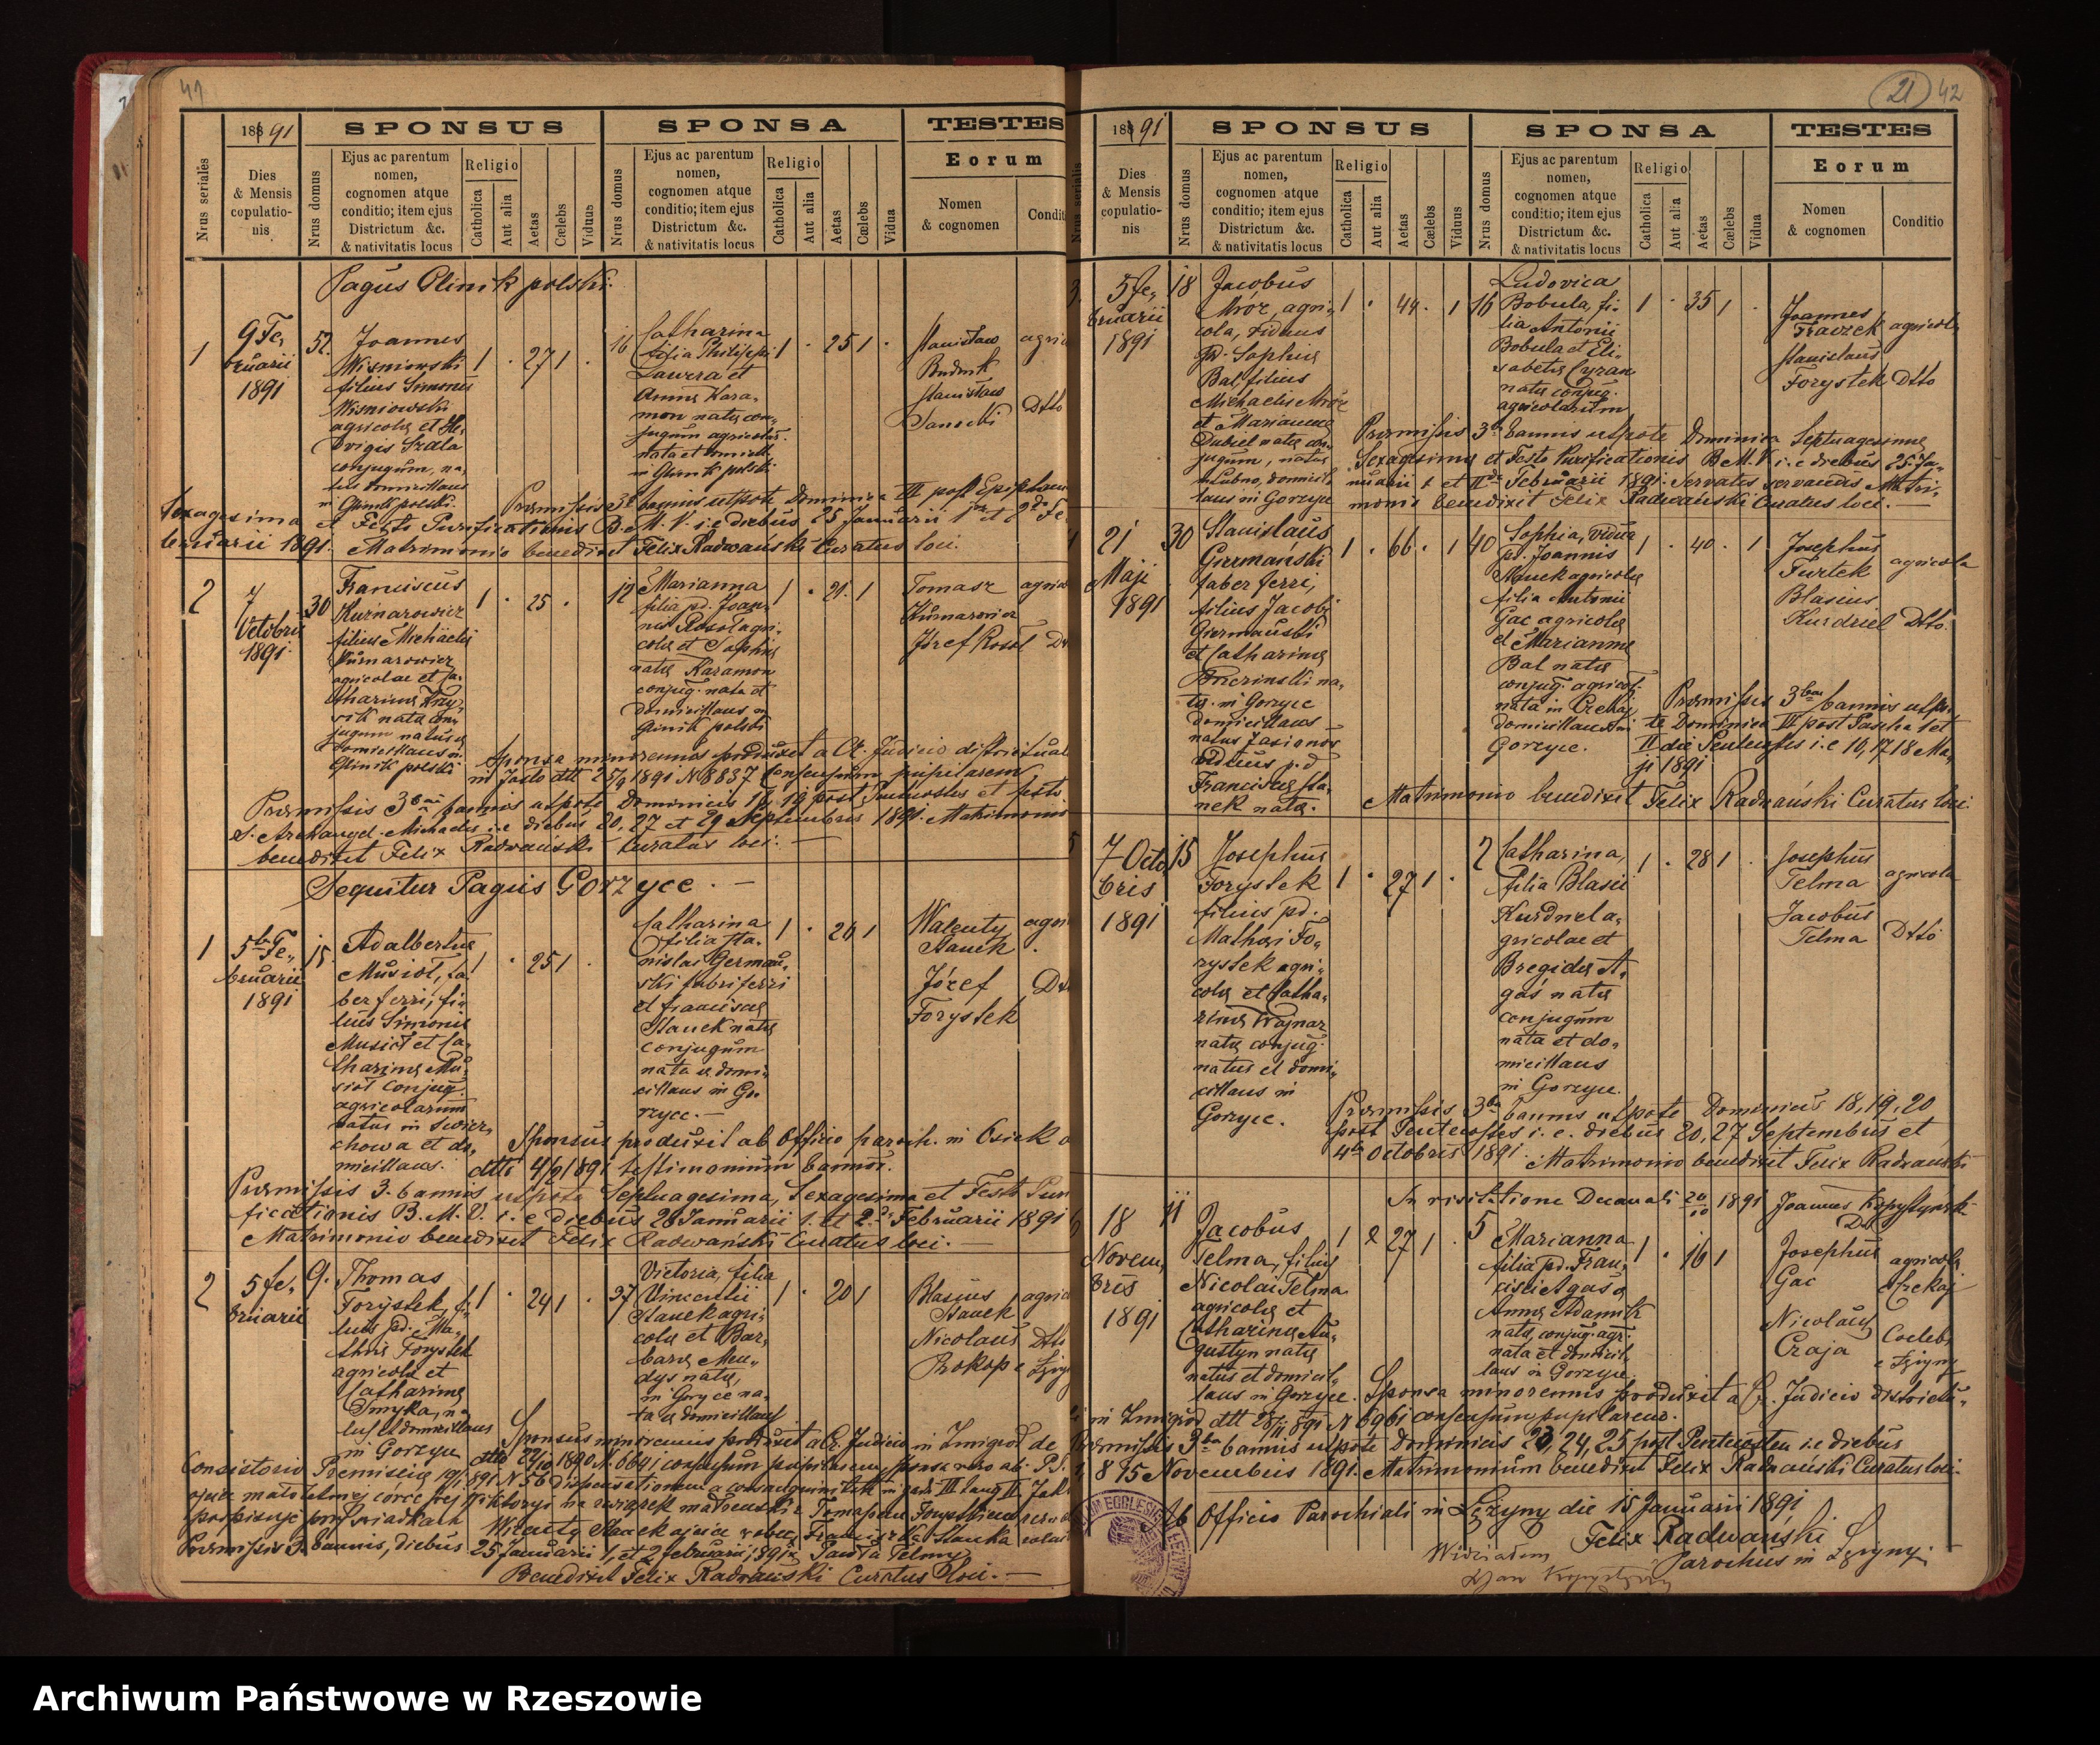 41
1891
SPONSUS
SPONSA
TESTES
Nrus seriales
Dies
& Mensis
copulatio-
nis
Nrus domus
Ejus ac parentum
nomen,
cognomen atque
conditio; item ejus
Districtum &c.
& nativitatis locus
Religio
Catholica
Aut alia
Aetas
Cælebs
Viduus
Nrus domus
Ejus ac parentum
nomen,
cognomen atque
conditio; item ejus
Districtum &c.
& nativitatis locus
Religio
Catholica
Aut alia
Aetas
Cælebs
Vidua
Eorum
Nomen
& cognomen
Condit
Pagus Glinik polski.
1
9 Fe,,
bruarii
1891
52.
Joannes
Wiśniowski
filius Simonis
Wisniowski
agricolæ et He,,
dvigis Szala
conjugum, na,,
tus domicillans
in Glinik polski.
1 . 27 1 .
16
Catharina
filia Philippi
Lawera et
Annæ Kara,,
mon natæ con,,
jugum agricolar.
nata et domicill.
in Glinik polski
1 . 25 1 .
Stanisław
Budnik
Stanisław
Sanocki
agric
Dtto
Præmissis 3bus bannis utpote Dominica III post Epiphan
Sexagesima et Festo Purificationis B. M. V. i. e diebus 25 Januarii 1 et 2do Fe
bruarii 1891. Matrimonio benedixit Felix Radwański Curatus loci.
2
7
Octobris
1891.
30
Franciscus
Kuźnarowicz
filius Michäelis
Kuźnarowicz
agricolae et Ca,,
tharinæ
natæ con,,
jugum natus et
domicillans in
Glinik polski
1 . 25 .
12
Marianna
filia pd. Joan,,
nis Rosoł agri,,
colæ et Sophiæ
natæ Karamon
conjug. nata et
domicillans in
Glinik polski
1 . 21. 1
Tomasz
Kuźnarowicz
Józef Rosół
agrico
Dtt
Sponsa minorennis produxit a Cr. Judicio districtual
in Jasło dtt 25/9 1891 N 8837 Consensum pupilarem
Præmissis 3bus bannis utpote Dominicis 18, 19 post Pentecostes et festo
S. Archangel. Michaelis i. e diebus 20, 27 et 29 Septembris 1891. Matrimonio
benedixit Felix Radwański Curatus loci. —
Sequitur Pagus Gorzyce. —
1
5to Fe,,
bruarii
1891
15.
Adalbertus
Musioł, fa,,
ber ferri, fi,,
lius Simonis
Musioł et Ca,,
tharinæ Mu,,
sioł conjug.
agricolarum
natus in Swier,,
chowa et do,,
micillans.
1 . 25 1 .
Catharina
filia Sta,,
nislai German,,
ski fabri ferri
et Franciscæ
Stanek natæ
conjugum
nata et domi,,
cillans in Go,,
rzyce. —
1 . 20 1
Walenty
Stanek
Józef
Forystek
agri
Dtt
Sponsus produxit ab Officio paroch. in Osiek
dtto 4/2 1891 testimonium bannor.
Præmissis 3. bannis utpote Septuagesima, Sexagesima et Festo Puri
ficationis B. M. V. i. e diebus 28 Januarii 1. et 2di Februarii 1891
Matrimonio benedixit Felix Radwański Curatus loci. —
2
5 Fe,,
bruarii
9.
Thomas
Forystek, fi,,
lius pd. Ma,,
thæi Forystek
agricolæ et
Catharinæ
Smyka, na,,
tus et domicillans
in Gorzyce
1 . 24 1 .
37
Victoria, filia
Vincentii
Stanek agri,,
colæ et Bar,,
baræ Men,,
dys natæ,
in Goryce na,,
ta et domicillans
1 . 20 1
Blasius
Stanek
Nicolaus
Prokop
agric
Dtto
Sponsus minorennis produxit a Cr. Judicio in Zmigrod de
dtto 22/10 1890 N. 6641 consensum pupilarem, sponsa vero ab. Rd.
Consistorio Premisl. 10/1 891 N 56 dispensationem a consanguinitate in gradu III tang. II Jako
ojciec małoletniej córce swej Wiktoryi na związek małżeński z Tomaszem Forystkiem
podpisuje przy świadkach Wicenty Stanek ojciec wobec Franciszka Stanka
Præmissis 3. bannis, diebus 25 Januarii 1, et 2 februarii 1891. Pawła Telmy
Benedixit Felix Radwański Curatus loci. —
21
42
1891
SPONSUS
SPONSA
TESTES
Nrus serialis
Dies
& Mensis
copulatio-
nis
Nrus domus
Ejus ac parentum
nomen,
cognomen atque
conditio; item ejus
Districtum &c.
& nativitatis locus
Religio
Catholica
Aut alia
Aetas
Cælebs
Viduus
Nrus domus
Ejus ac parentum
nomen,
cognomen atque
conditio; item ejus
Districtum &c.
& nativitatis locus
Religio
Catholica
Aut alia
Aetas
Cælebs
Vidua
Eorum
Nomen
& cognomen
Conditio
3.
5 Fe,,
bruarii
1891
18
Jacobus
Mróz, agri,,
cola, viduus
pd. Sophiæ
Bal, filius
Michaelis Mróz
et Mariannæ
Dubiel natæ con,,
jugum, natus
Lubno, domicil,,
lans in Gorzyce
1 . 44 . 1
16
Ludovica
Bobula, fi,,
lia Antonii
Bobula et Eli,,
sabetæ Cyran
natæ conjug.
agricolarum
1 . 35 1 .
Joannes
Traczek
Stanislaus
Forystek
agricola
Dtto
Præmissis 3bus bannis utpote Dominica Septuagesima
Sexagesima et Festo Purificationis B. M. V. i. e diebus 25 Ja,,
nuarii 1 et IIda Februarii 1891. Servatis servandis Matri,,
monio benedixit Felix Radwański Curatus loci. —
21
Maji
1891
30
Stanislaus
Giermański
faber ferri,
filius Jacobi
Giermański
et Catharinæ
na,,
tæ. in Gorzyce
domicillans
natus Jasionów
viduus p. d
Franciscæ Sta,,
nek natæ.
1 . 66 . 1
40
Sophia, vidua
pd. Joannis
Stanek agricolæ
filia Antonii
Gac agricolæ
et Mariannæ
Bal natæ
conjug. agricol.
nata in Czekaj
domicillans in
Gorzyce.
1 . 40 . 1
Josephus
Furtek
Blasius
Kurdziel
agricola
Dtto.
Præmissis 3bus bannis utpo,,
te Dominica III post Pascha 1 et
II die Pentecostes i. e 10, 17, 18 Ma,,
ji 1891
Matrimonio benedixit Felix Radwański Curatus loci
5
7 Octo,,
bris
1891
15
Josephus
Forystek
filius pd.
Mathæi Fo,,
rystek agri,,
colæ et Catha,,
rinæ Wojnar
natæ conjug.
natus et domi,,
cillans in
Gorzyce.
1 . 27 1 .
2
Catharina,
filia Blasii
Kurdziel a,,
gricolae et
Bregidæ A,,
gas natæ
conjugum
nata et do,,
micillans
in Gorzyce.
1 . 28 1 .
Josephus
Telma
Jacobus
Telma
agricola
Dtto
Præmissis 3bus bannis utpote Dominicis 18, 19, 20
post Pentecostes i. e. diebus 20, 27 Septembris et
4to Octobris 1891. Matrimonio benedixit Felix Radwański
In visitatione Decanali 20/10 1891 Joannes Kopystyński
6
18
Novem,,
bris
1891
11
Jacobus
Telma, filius
Nicolai Telma
agricolæ et
Catharinæ Au,,
gustyn natæ
natus et domicil,,
lans in Gorzyce.
1 27 1 .
5
Marianna
filia pd. Fran,,
cisci Agas a
Annæ Adamik
natæ, conjug. agr.
nata et domicil,,
lans in Gorzyce.
1 . 16 1
Josephus
Gac
Nicolaus
Czaja
agricola
Czekaj
Coelebs
e Łężyny
Sponsa minorennis produxit a Cr. Judicio districtu,,
in Zmigród dtt 28/11 891 N 6961 consensum pupilarem.
Præmissis 3bus bannis utpote Dominicis 23, 24, 25 post Pentecosten i. e diebus
1, 8 15 Novembris 1891. Matrimonium benedixit Felix Radwański Curatus loci.
Ab Officio Parochiali in Łężyny die 15 Januarii 1891
Felix Radwański
Parochus in Łężyny.
Widziałem
Xjan Kopystyński
Archiwum Państwowe w Rzeszowie